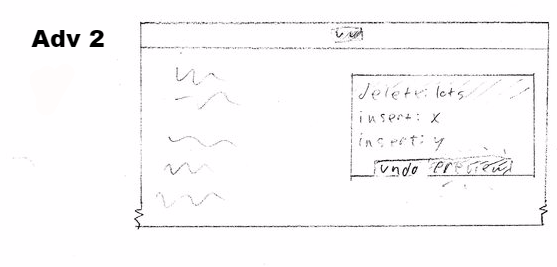 Adv 2
delete: lots
insert: x
insert: y
undo preview